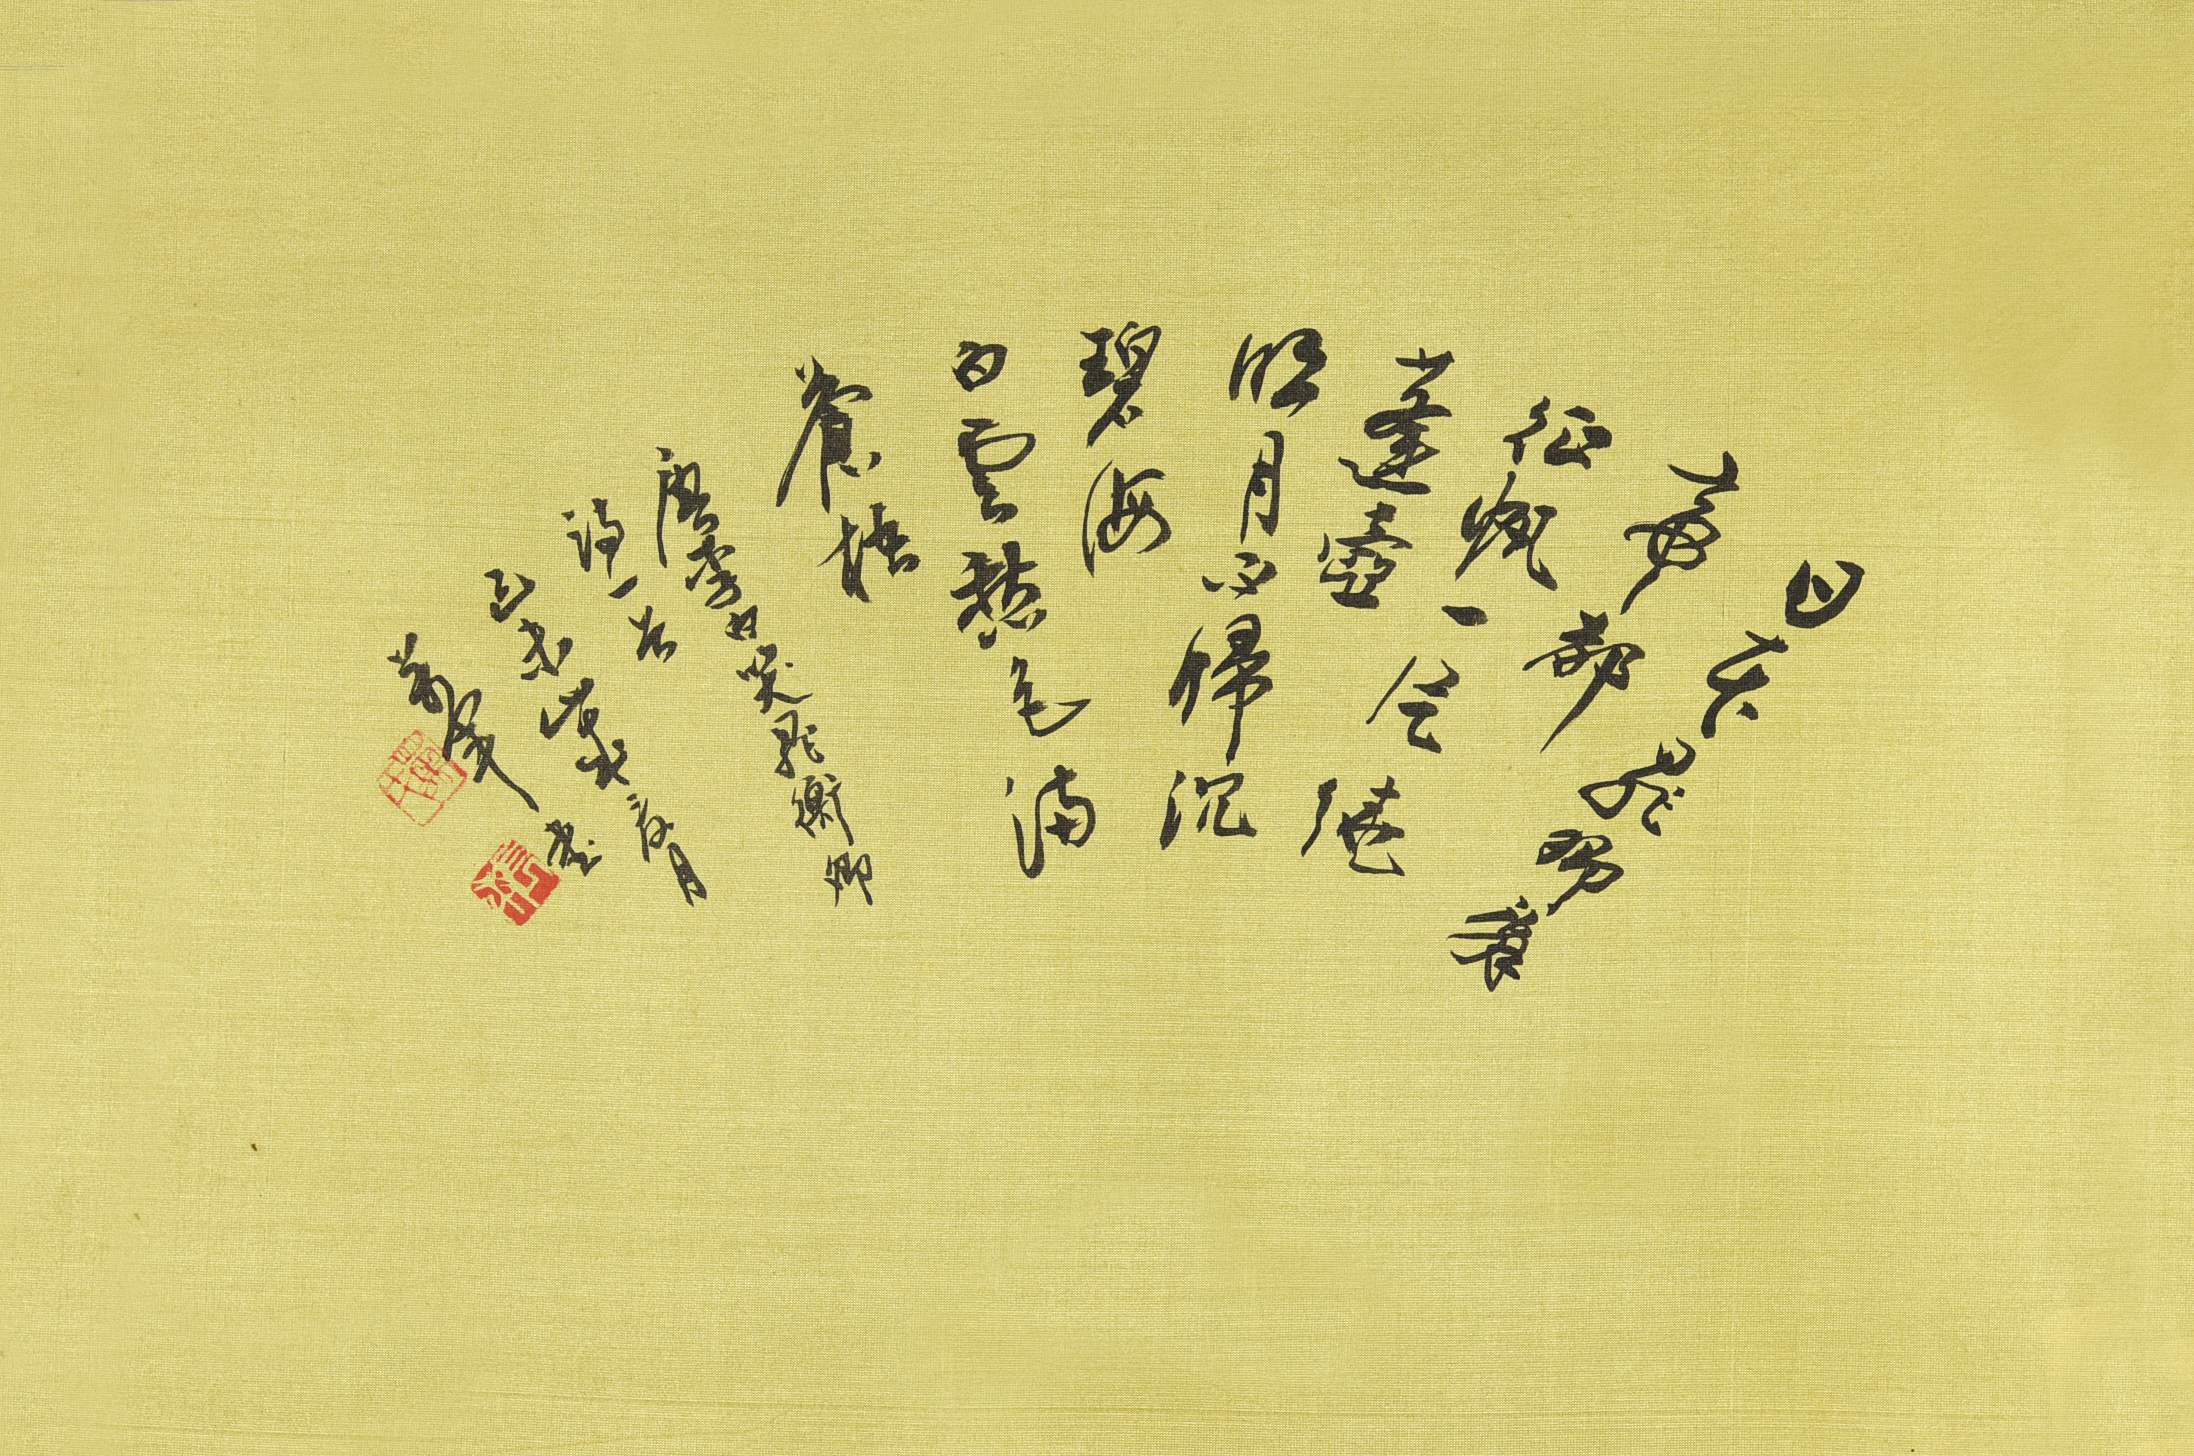 日本晁卿辭
帝都
征帆一片繞
蓬壺
明月不歸沉
碧海
白雲愁色滿
蒼梧
唐李白哭晁衡卿
詩一首
乙未 月
書